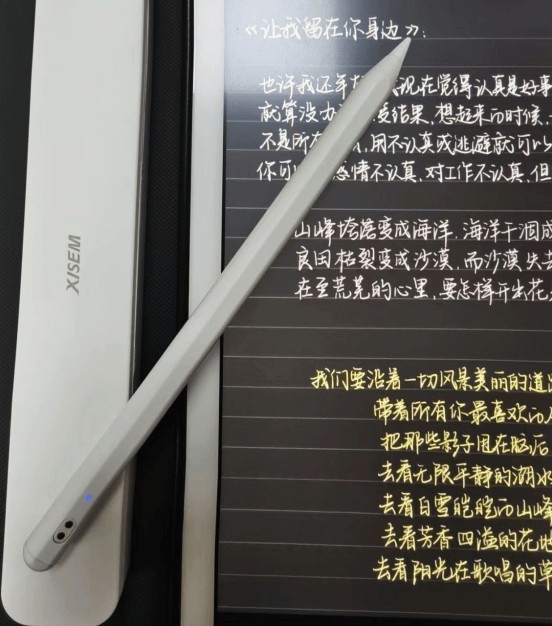 XISEM
《让我留在你身边》:
也许我还年 现在觉得认真是好事
就算没办 结果,想起来的时候,
不是所 用不认真或逃避就可以
你可 感情不认真.对工作不认真,但
山峰垮落变成海洋.海洋干涸成
良田枯裂变成沙漠,而沙漠失去
在至荒芜的心里,要怎样开出花
我们要沿着一切风景美丽的道
带着所有你最喜欢的
把那些影子甩在脑后
去看无限平静的湖水
去看白雪皑皑的山峰
去看芳香四溢的花
去看阳光在歌唱的草